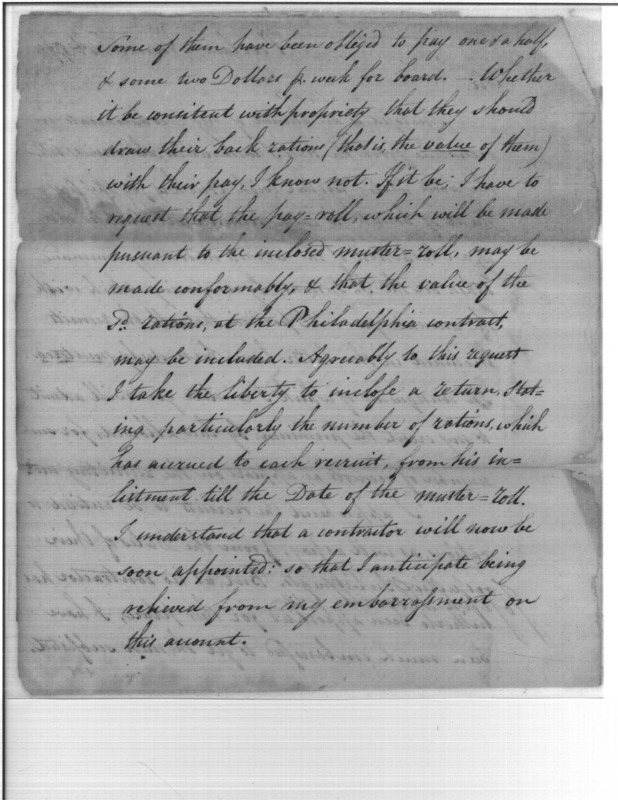 Some of them have been obliged to pay one & a half,
& some two Dollars pr. week for board. – Whether
it be consitent with propriety that they should
draw their back rations (that is, the value of them)
with their pay, I know not. If it be; I have to
request that the pay=roll, which will be made
pursuant to the inclosed muster=roll, may be
made conformably, & that the value of the
Sd. rations, at the Philadelphia contract,
may be included. Agreeably to this request
I take the liberty to inclose a return, stat=
ing particularly the number of rations, which
has accrued to each recruit, from his in=
listment till the Date of the muster=roll.
I understand that a contractor will now be
soon appointed: so that I anticipate being
relieved from my embarrassment on
this account.